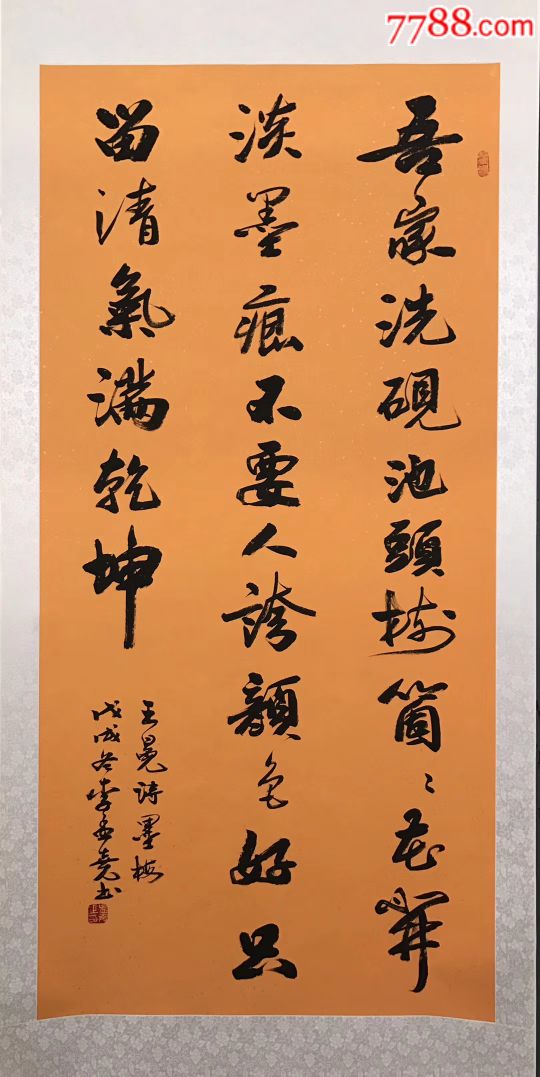 7788.com
吾家洗硯池頭樹箇〻花開
淡墨痕不要人誇顔色好只
留清氣滿乾坤
王冕詩墨梅
戊戌冬李孟堯书